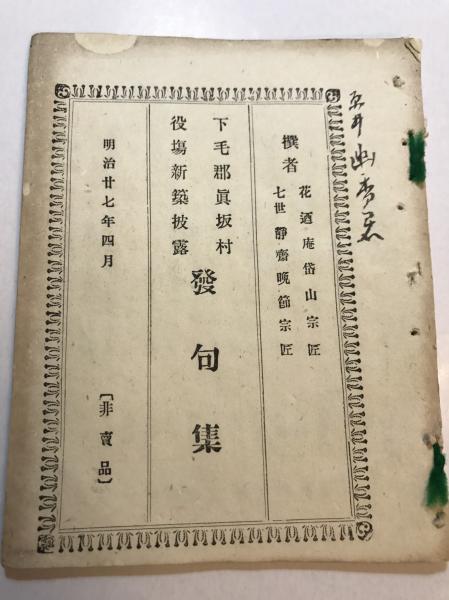 撰者
花酒庵岱山宗匠
七世靜齋晩節宗匠
下毛郡眞坂村
役塲新築披露
發句集
明治廿七年四月
〔非賣品〕